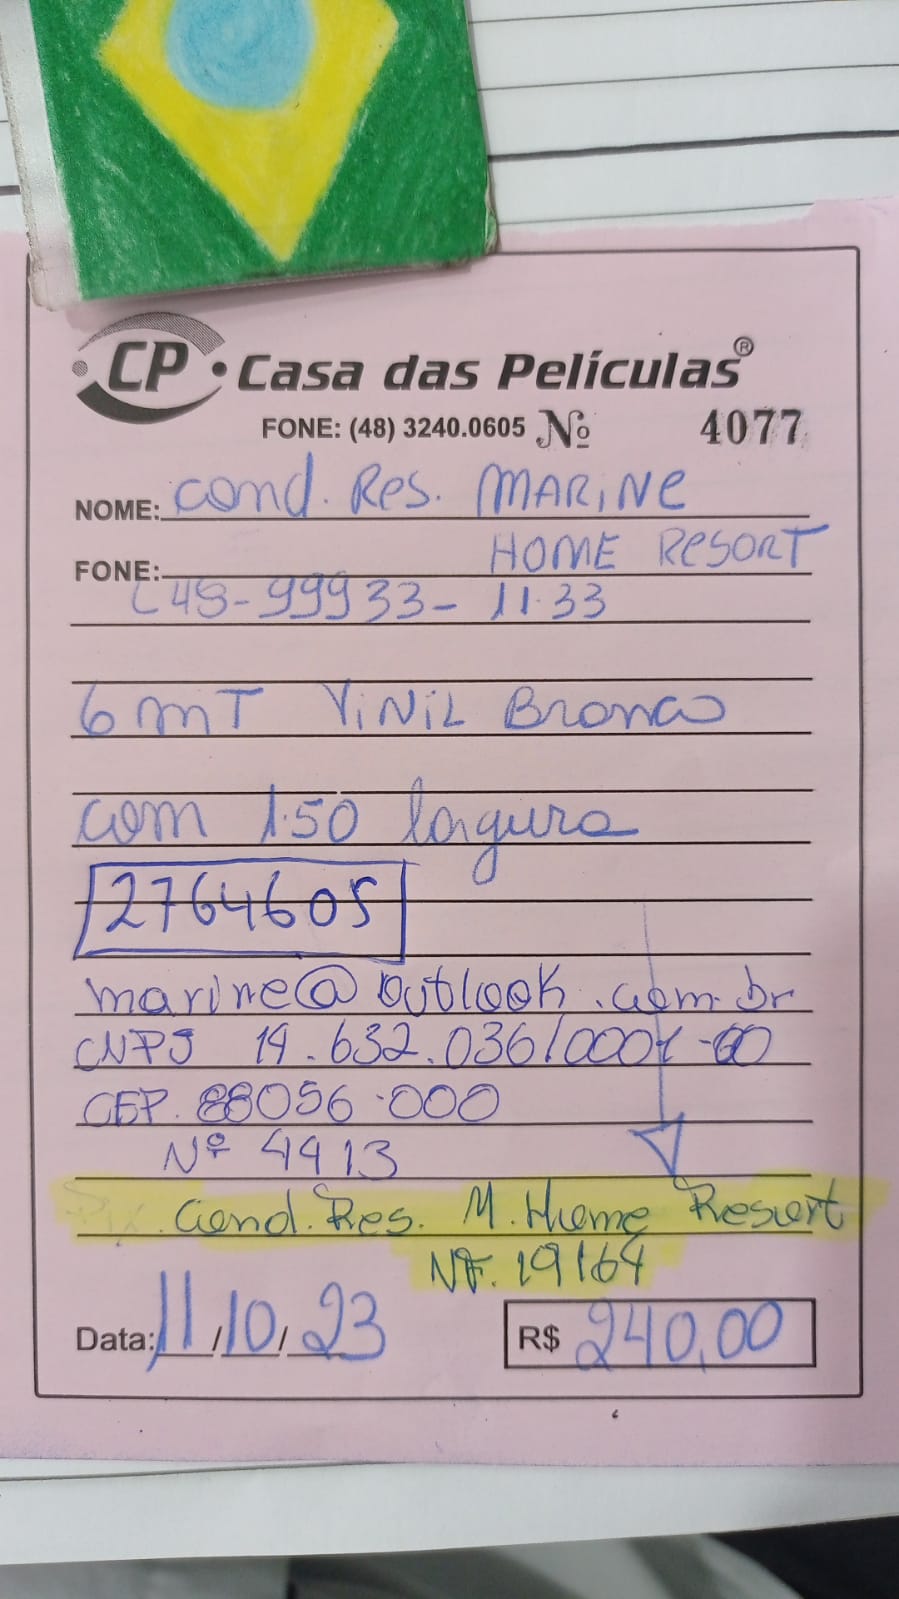 CP Casa das Películas®
FONE: (48) 3240.0605 Nº 4077
NOME: Cond. Res. MARINE
HOME RESORT
FONE:
48-99933-1133
6 mT ViNiL Branco
com 1.50 lagura
2764605
marine@outlook.com.br
CNPJ 14.632.036/0001-60
CEP. 88056-000
Nº 4413
Cond. Res. M. Home Resort
NF. 19164
Data: 11/10/23 R$ 240,00